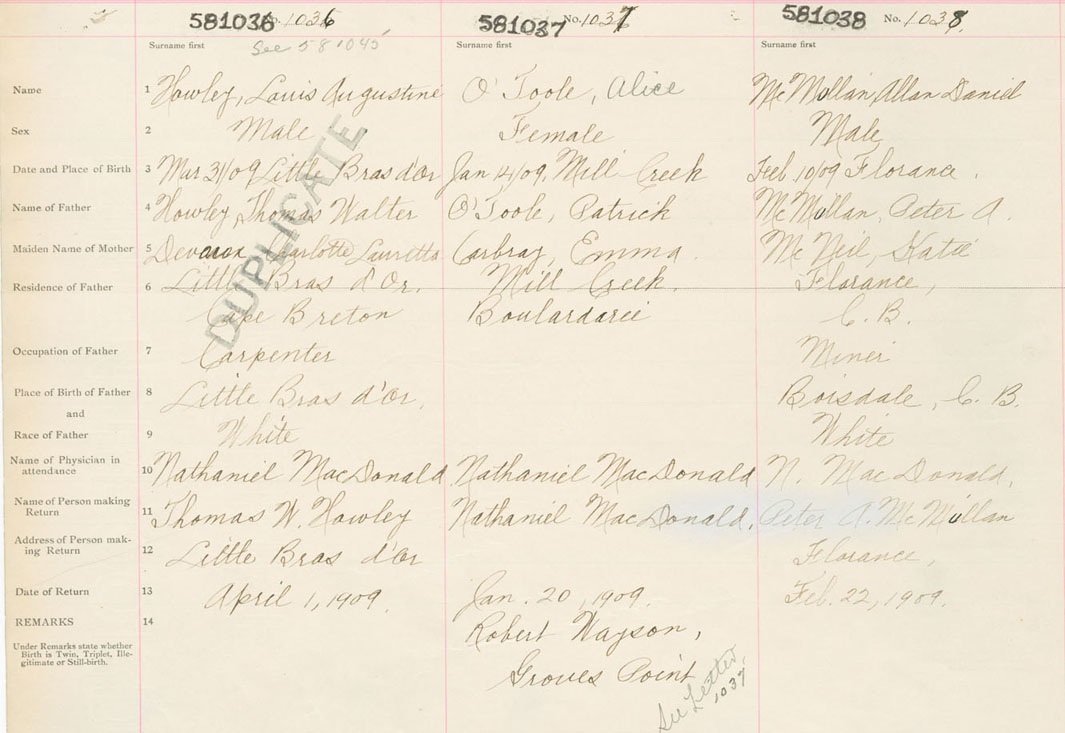 581036 No. 1036
581037 No. 1037
581038 No. 1038.
Surname first
See 581045
Surname first
Surname first
Name 1 Howley, Louis Augustine O'Toole, Alice McMullan, Allan Daniel
Sex 2 Male Female Male
Date and Place of Birth 3 Mar 31/09 Little Bras d'Or Jan 14/09. Mill Creek Feb 10/09 Florance.
Name of Father 4 Howley, Thomas Walter O'Toole, Patrick McMullan, Peter A.
Maiden Name of Mother 5 Charlotte Lauretta Carbray, Emma. McNeil, Katie
Residence of Father 6 Little Bras d'Or. Mill Creek. Florance,
Cape Breton Boulardarie C. B.
Occupation of Father 7 Carpenter Miner
Place of Birth of Father 8 Little Bras d'Or, Boisdale, C. B.
and
Race of Father 9 White White
Name of Physician in
attendance 10 Nathaniel MacDonald Nathaniel MacDonald N. MacDonald,
Name of Person making
Return 11 Thomas W. Howley Nathaniel MacDonald, Peter A. McMullan
Address of Person mak-
ing Return 12 Little Bras d'Or Florance,
Date of Return 13 April 1, 1909. Jan. 20, 1909. Feb. 22, 1909.
REMARKS 14 Robert Wayson,
Under Remarks state whether
Birth is Twin, Triplet, Ille-
gitimate or Still-birth.
Groves Point
See Letter
1037
DUPLICATE